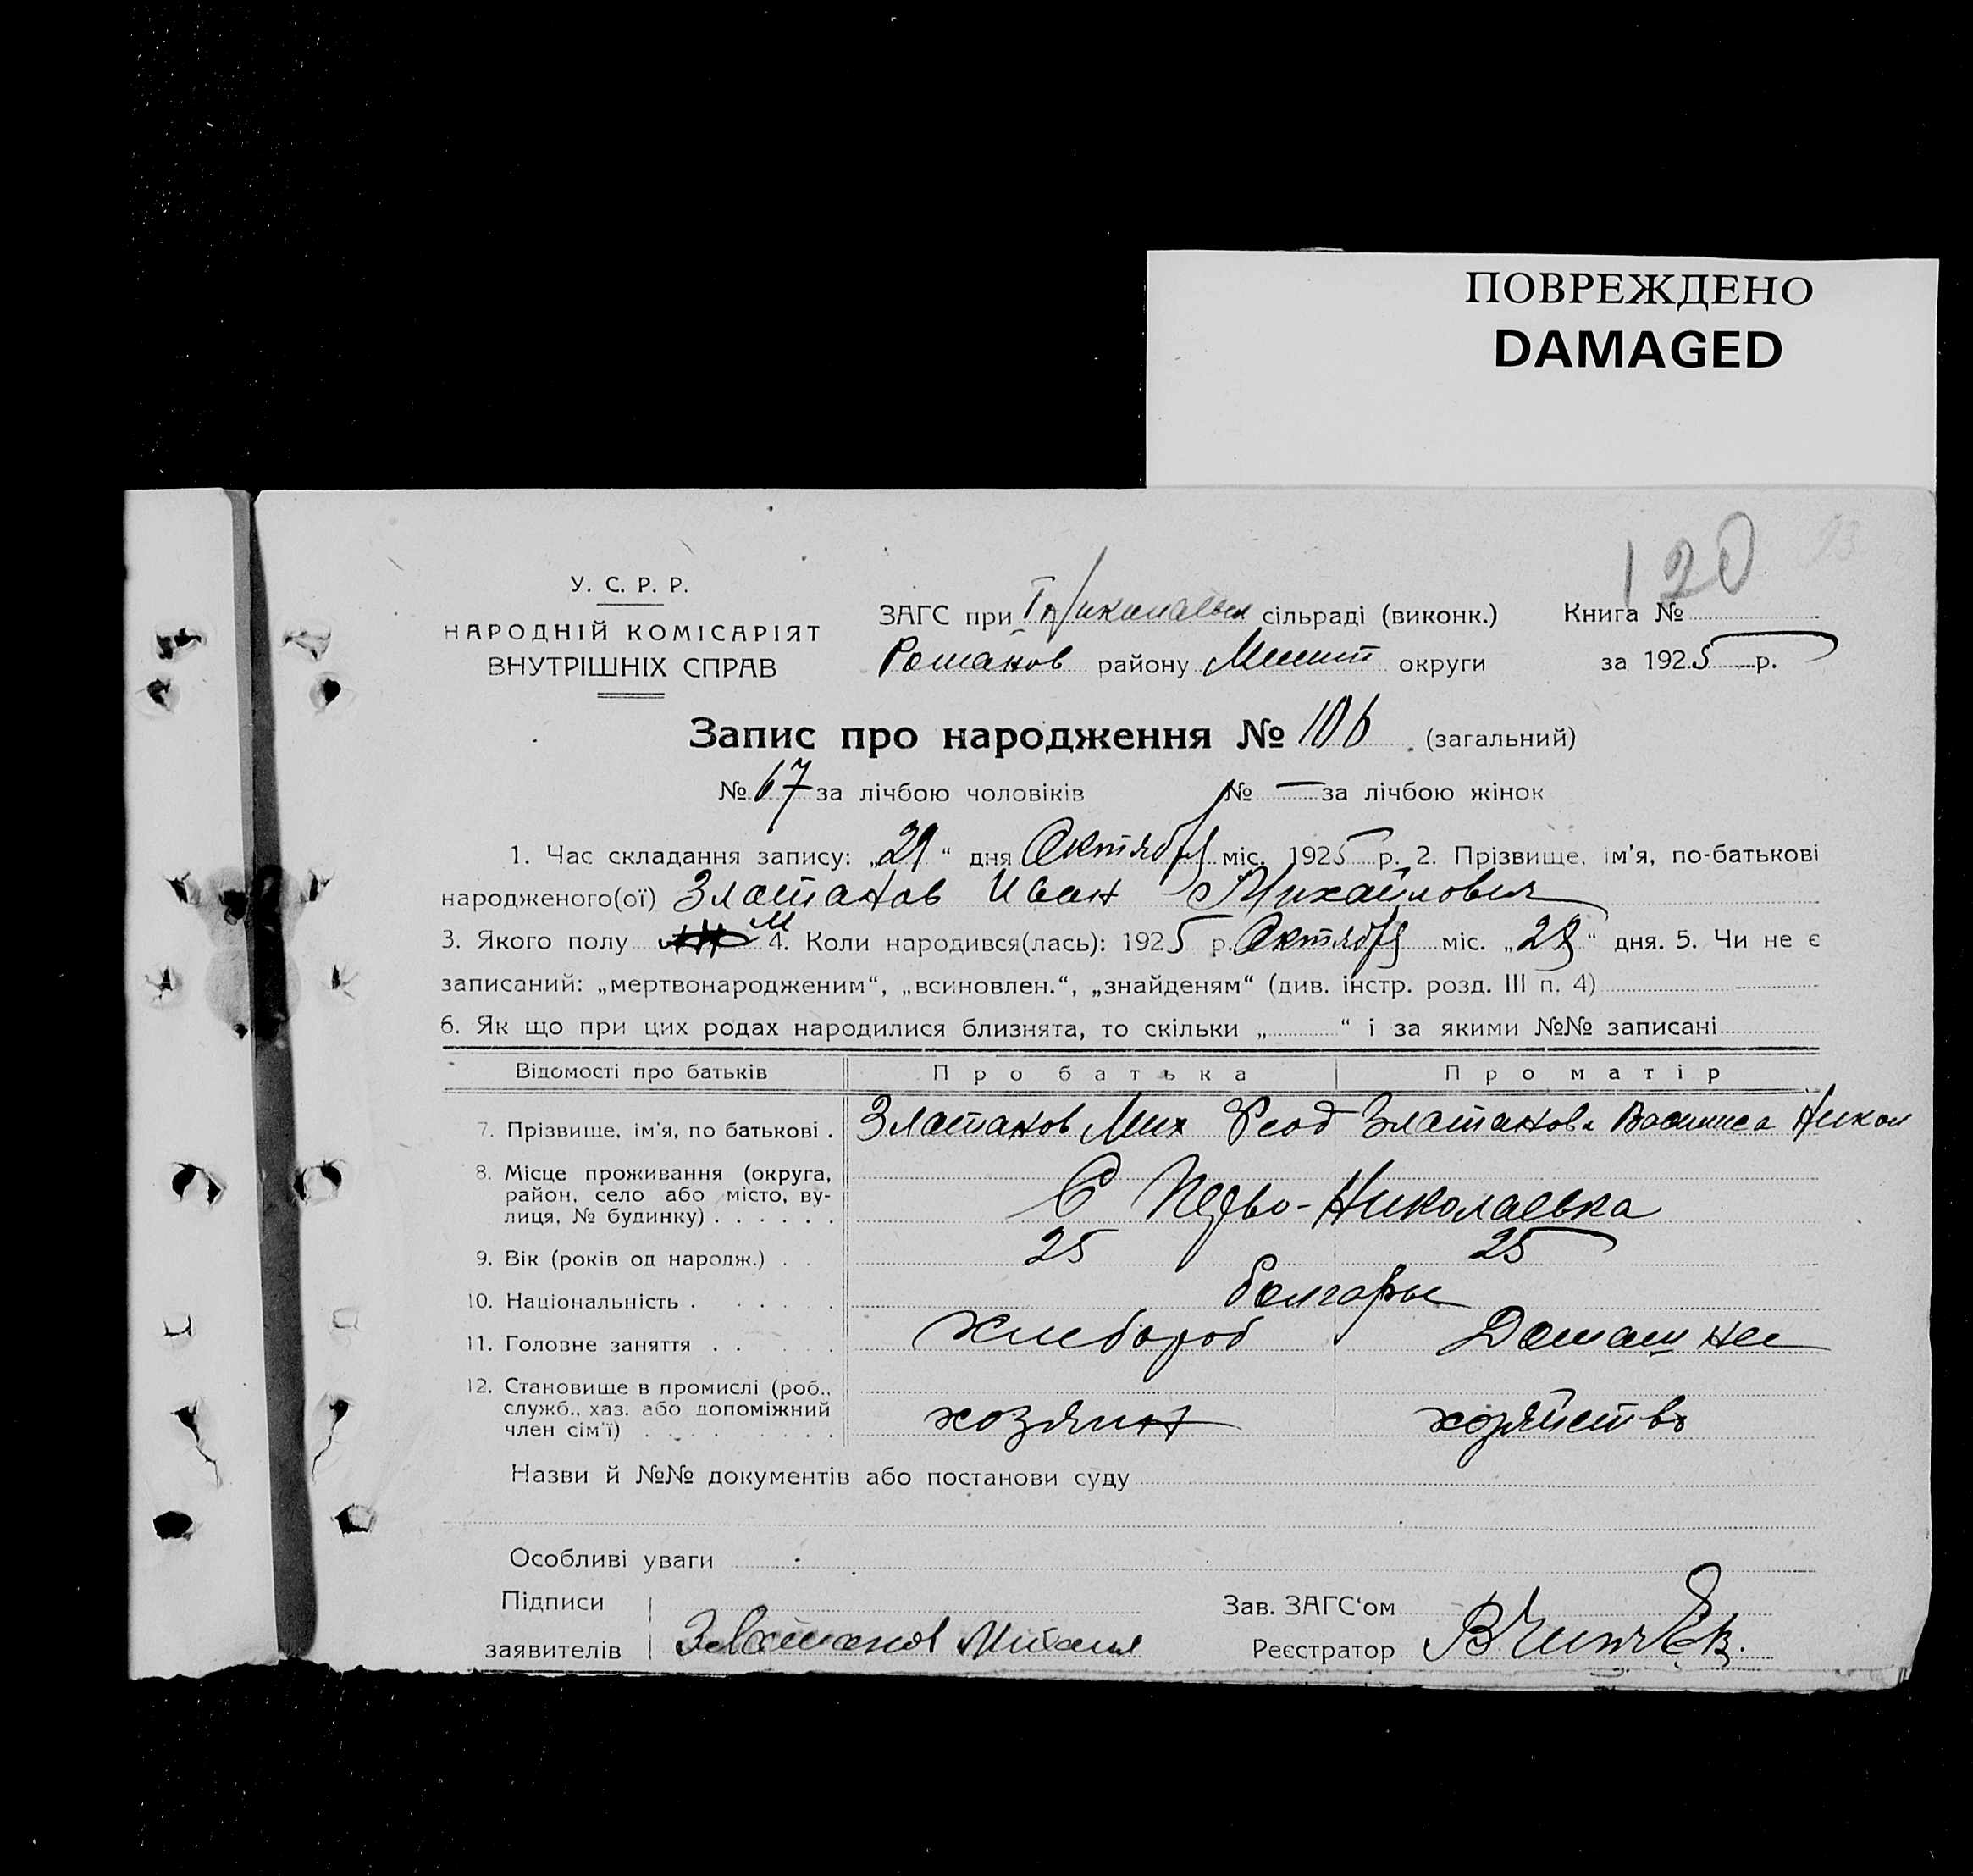 ПОВРЕЖДЕНО
DAMAGED
120
У. С. Р. Р.
НАРОДНІЙ КОМІСАРІЯТ
ВНУТРІШНІХ СПРАВ
ЗАГС при сільраді (виконк.) Книга №
Романов району округи за 1925 р.
Запис про народження № 106 (загальний)
№ 67 за лічбою чоловіків № — за лічбою жінок
1. Час складання запису: „29“ дня Октября міс. 1925 р. 2. Прізвище, ім'я, по-батькові
народженого(ої) Златанов Иван Михайлович
3. Якого полу М 4. Коли народився(лась): 1925 р. Октября міс. „28“ дня. 5. Чи не є
записаний: „мертвонародженим“, „всиновлен.“, „знайденям“ (див. інстр. розд. III п. 4)
6. Як що при цих родах народилися близнята, то скільки „ “ і за якими №№ записані
Відомості про батьків Про батька Про матір
7. Прізвище, ім'я, по батькові . Златанов Мих Феод Златанова Василиса Никол
8. Місце проживання (округа,
район, село або місто, ву-
лиця, № будинку) . . . . . . С Перво-Николаевка
9. Вік (років од народж.) . . 25 25
10. Національність . . . . . болгары
11. Головне заняття . . . . . хлебороб Домашнее
12. Становище в промислі (роб.,
служб., хаз. або допоміжний
член сім'ї) . . . . . . . . хозяин хозяйство
Назви й №№ документів або постанови суду
Особливі уваги
Підписи Зав. ЗАГС'ом
заявителів Златанов Реєстратор